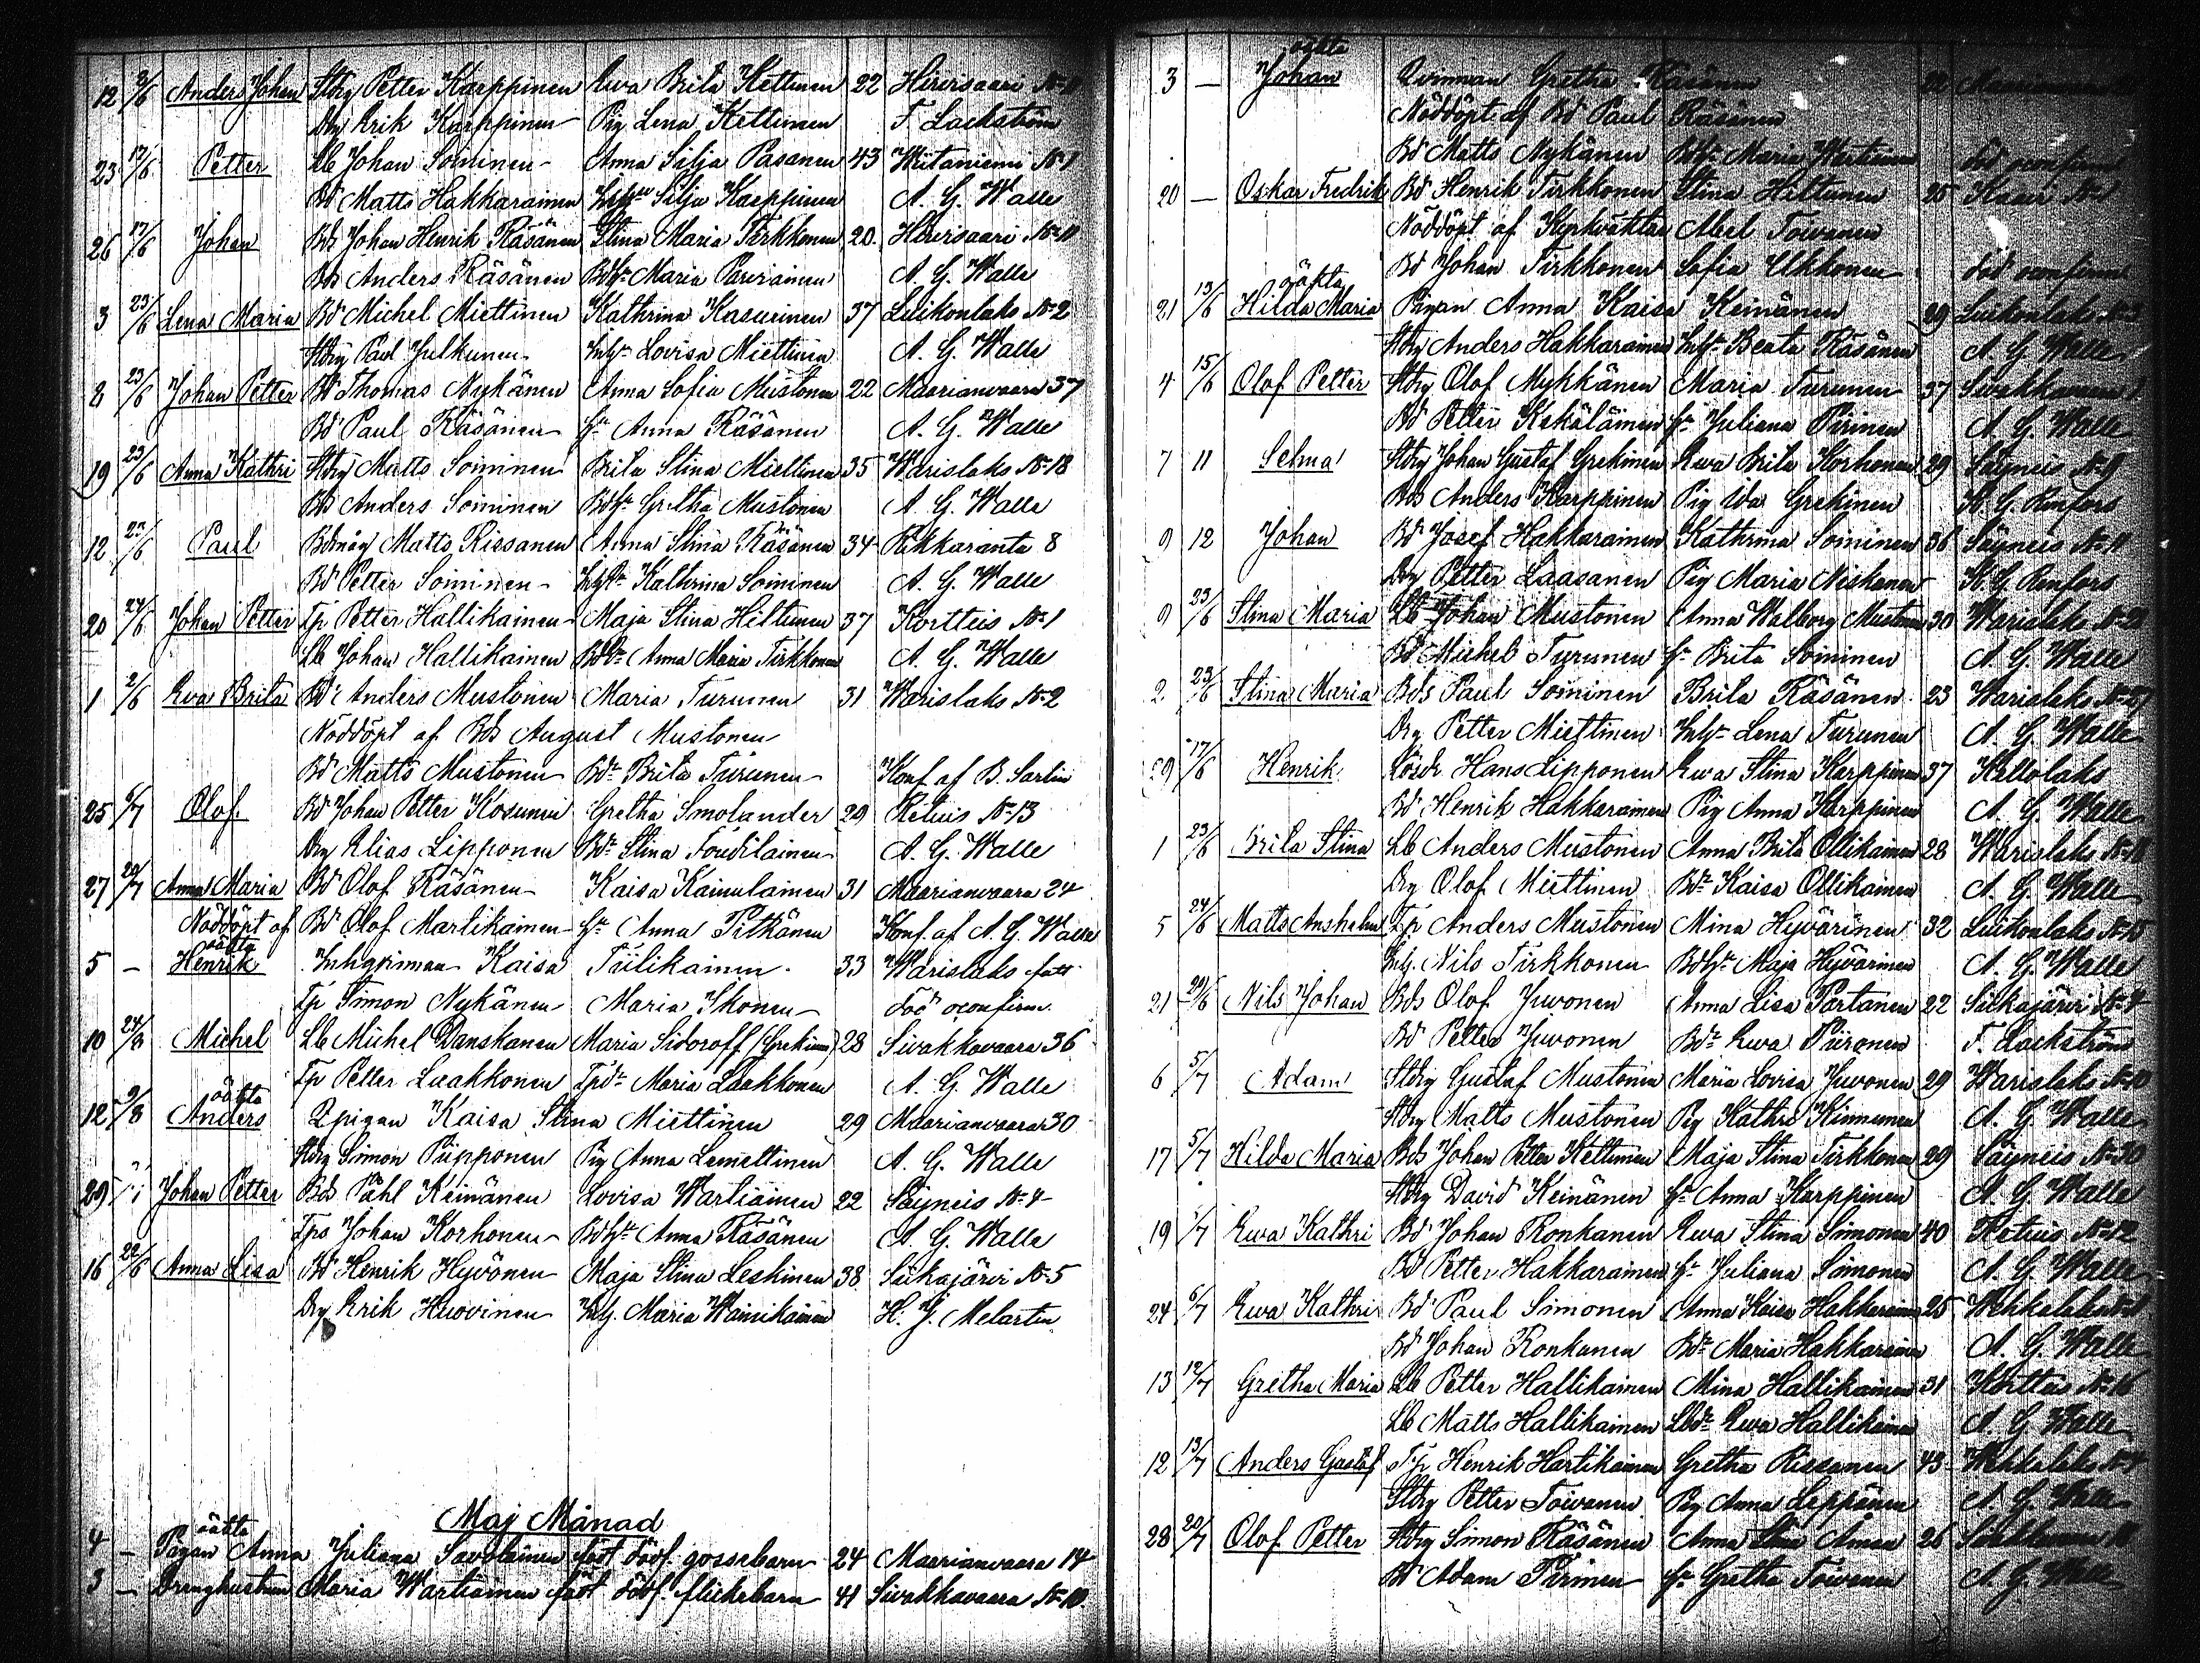 12 2/6 Anders Johan Stdrg Petter Karppinen Ewa Brita Kettunen 22 Hirvisaari No 11
Drg Erik Karppinen Pig Lena Kettunen F. Lackström
23 17/6 Petter Lb Johan Soininen Anna Silja Pasanen 43 Wiitaniemi No 1
Bd Matts Hakkarainen Silja Karppinen A. G. Walle
26 17/6 Johan Bds Johan Henrik Räsänen Stina Maria Tirkkonen 20 Hirvisaari No 11
Bds Anders Räsänen Maria Pauriainen A. G. Walle
3 23/6 Lena Maria Bd Michel Miettinen Kathrina Kasurinen 37 Luikonlaks No 2
Stdrg Paul Julkunen Lovisa Miettinen A. G. Walle
8 23/6 Johan Petter Bd Thomas Nykänen Anna Sofia Mustonen 22 Maarianvaara 37
Bd Paul Räsänen hu Anna Räsänen A. G. Walle
19 23/6 Anna Kathri Stdrg Matts Soininen Brita Stina Miettinen 35 Warislaks No 18
Bds Anders Soininen Gretha Mustonen A. G. Walle
12 Paul Bdmåg Matts Rissanen Anna Stina Räsänen 34 Rikkaranta 8
Bd Petter Soininen Kathrina Soininen A. G. Walle
20 24/6 Johan Petter Tp Petter Hallikainen Maja Stina Hiltunen 37 Kortteis No 1
Lb Johan Hallikainen Anna Maria Tirkkonen A. G. Walle
1 2/6 Ewa Brita Bd Anders Mustonen Maria Turunen 31 Warislaks No 2
Nöddöpt af Bds August Mustonen
Bd Matts Mustonen Brita Turunen Konf af B. Sarlin
25 6/7 Olof Bd Johan Petter Kosunen Gretha Smolander 29 Retuis No 13
Drg Elias Lipponen Stina Toudilainen A. G. Walle
27 20/7 Anna Maria Bd Olof Räsänen Kaisa Kainulainen 31 Maarianvaara 24
Nöddöpt af Bd Olof Martikainen hu Anna Pitkänen Konf af A. G. Walle
oäkta
5 — Henrik Inhqvinnan Kaisa Tiilikainen 33 Warislaks
Tp Simon Nykänen Maria Ikonen död oconfirm.
10 24/8 Michel Lb Michel Danskanen Maria Sidoroff (Grekinna) 28 Sivakkavaara 36
Tp Petter Laakkonen Maria Laakkonen A. G. Walle
oäkta
12 9/8 Anders Kaisa Stina Miettinen 29 Maarianvaara 30
Stdrg Simon Piipponen Pig Anna Lemettinen A. G. Walle
29 Johan Petter Bds Påhl Keinänen Lovisa Wartiainen 22 Säyneis No 4
Tps Johan Korhonen Anna Räsänen A. G. Walle
16 22/6 Anna Lisa Bd Henrik Hyvönen Maja Stina Leskinen 38 Siikajärvi No 5
Drg Erik Huovinen Inh. Maria Wainikainen H. J. Melartin
Maj Månad
oäkta
4 — Pigan Anna Juliana Savolainen född dödf. gossebarn 24 Maarianvaara 14
3 — Drenghustrun Maria Wartiainen född dödf. flickebarn 41 Sivakkavaara No 10
oäkta
3 — Johan Qvinnan Gretha Räsänen
Nöddöpt af Bd Paul Räsänen
Bd Matts Nykänen Maria Wartiainen död oconfirm
20 — Oskar Fredrik Bd Henrik Tirkkonen Stina Hiltunen 25
Nöddöpt af Abel Toivanen
Bd Johan Tirkkonen Sofia Ukkonen död oconfirm
oäkta
21 13/6 Hilda Maria Pigan Anna Kaisa Keinänen 29 Luikonlaks
Stdrg Anders Hakkarainen Beata Räsänen A. G. Walle
4 15/6 Olof Petter Stdrg Olof Mykkänen Maria Turunen 37 Sivakkavaara
Bd Petter Kekäläinen hu Juliana Pirinen A. G. Walle
7 11 Selma Stdrg Johan Gustaf Grekinen Ewa Brita Korhonen 29 Säyneis No 9
Bds Anders Karppinen Pig Ida Grekinen K. G. Renfors
9 12 Johan Bd Josef Hakkarainen Kathrina Soininen 36 Säyneis No 11
Drg Petter Laasanen Pig Maria Niskanen K. G. Renfors
9 23/6 Stina Maria Lb Johan Mustonen Anna Walborg Mustonen 30 Warislaks No 2
Bd Michel Turunen hu Brita Soininen A. G. Walle
2 23/6 Stina Maria Bds Paul Soininen Brita Räsänen 23 Warislaks No 27
Drg Petter Miettinen Lena Turunen A. G. Walle
29 17/6 Henrik Lösdr Hans Lipponen Ewa Stina Karppinen 37 Kellolaks
Bd Henrik Hakkarainen Pig Anna Karppinen A. G. Walle
1 23/6 Brita Stina Lb Anders Mustonen Anna Brita Ollikainen 28 Warislaks No 11
Drg Olof Miettinen Kaisa Ollikainen A. G. Walle
5 24/6 Matts Anshelm Tp Anders Mustonen Mina Hyvärinen 32 Luikonlaks No 15
Inh. Nils Tirkkonen Maja Hyvärinen A. G. Walle
21 29/6 Nils Johan Bds Olof Juvonen Anna Lisa Partanen 22 Siikajärvi No 4
Bd Petter Juvonen Ewa Piironen F. Lackström
6 5/7 Adam Stdrg Gustaf Mustonen Maria Lovisa Juvonen 29 Warislaks No 10
Stdrg Matts Mustonen Pig Kathri Kinnunen A. G. Walle
17 5/7 Hilda Maria Bds Johan Petter Kettunen Maja Stina Tirkkonen 29 Säyneis No 30
Stdrg David Keinänen hu Anna Karppinen A. G. Walle
19 5/7 Ewa Kathri Bd Johan Ronkanen Ewa Stina Simonen 40 Retuis No 12
Bd Petter Hakkarainen hu Juliana Simonen A. G. Walle
24 6/7 Ewa Kathri Bd Paul Simonen Anna Kaisa Hakkarainen 25
Bd Johan Ronkanen Maria Hakkarainen A. G. Walle
13 12/7 Gretha Maria Lb Petter Hallikainen Mina Hallikainen 31 Kortteis No 16
Lb Matts Hallikainen Ewa Hallikainen A. G. Walle
12 13/7 Anders Gustaf Tp Henrik Hartikainen Gretha Rissanen 43
Stdrg Petter Toivanen Pig Anna Leppänen A. G. Walle
28 20/7 Olof Petter Stdrg Simon Räsänen Anna Stina 26
Bd Adam Pirinen hu Gretha Toivanen A. G. Walle